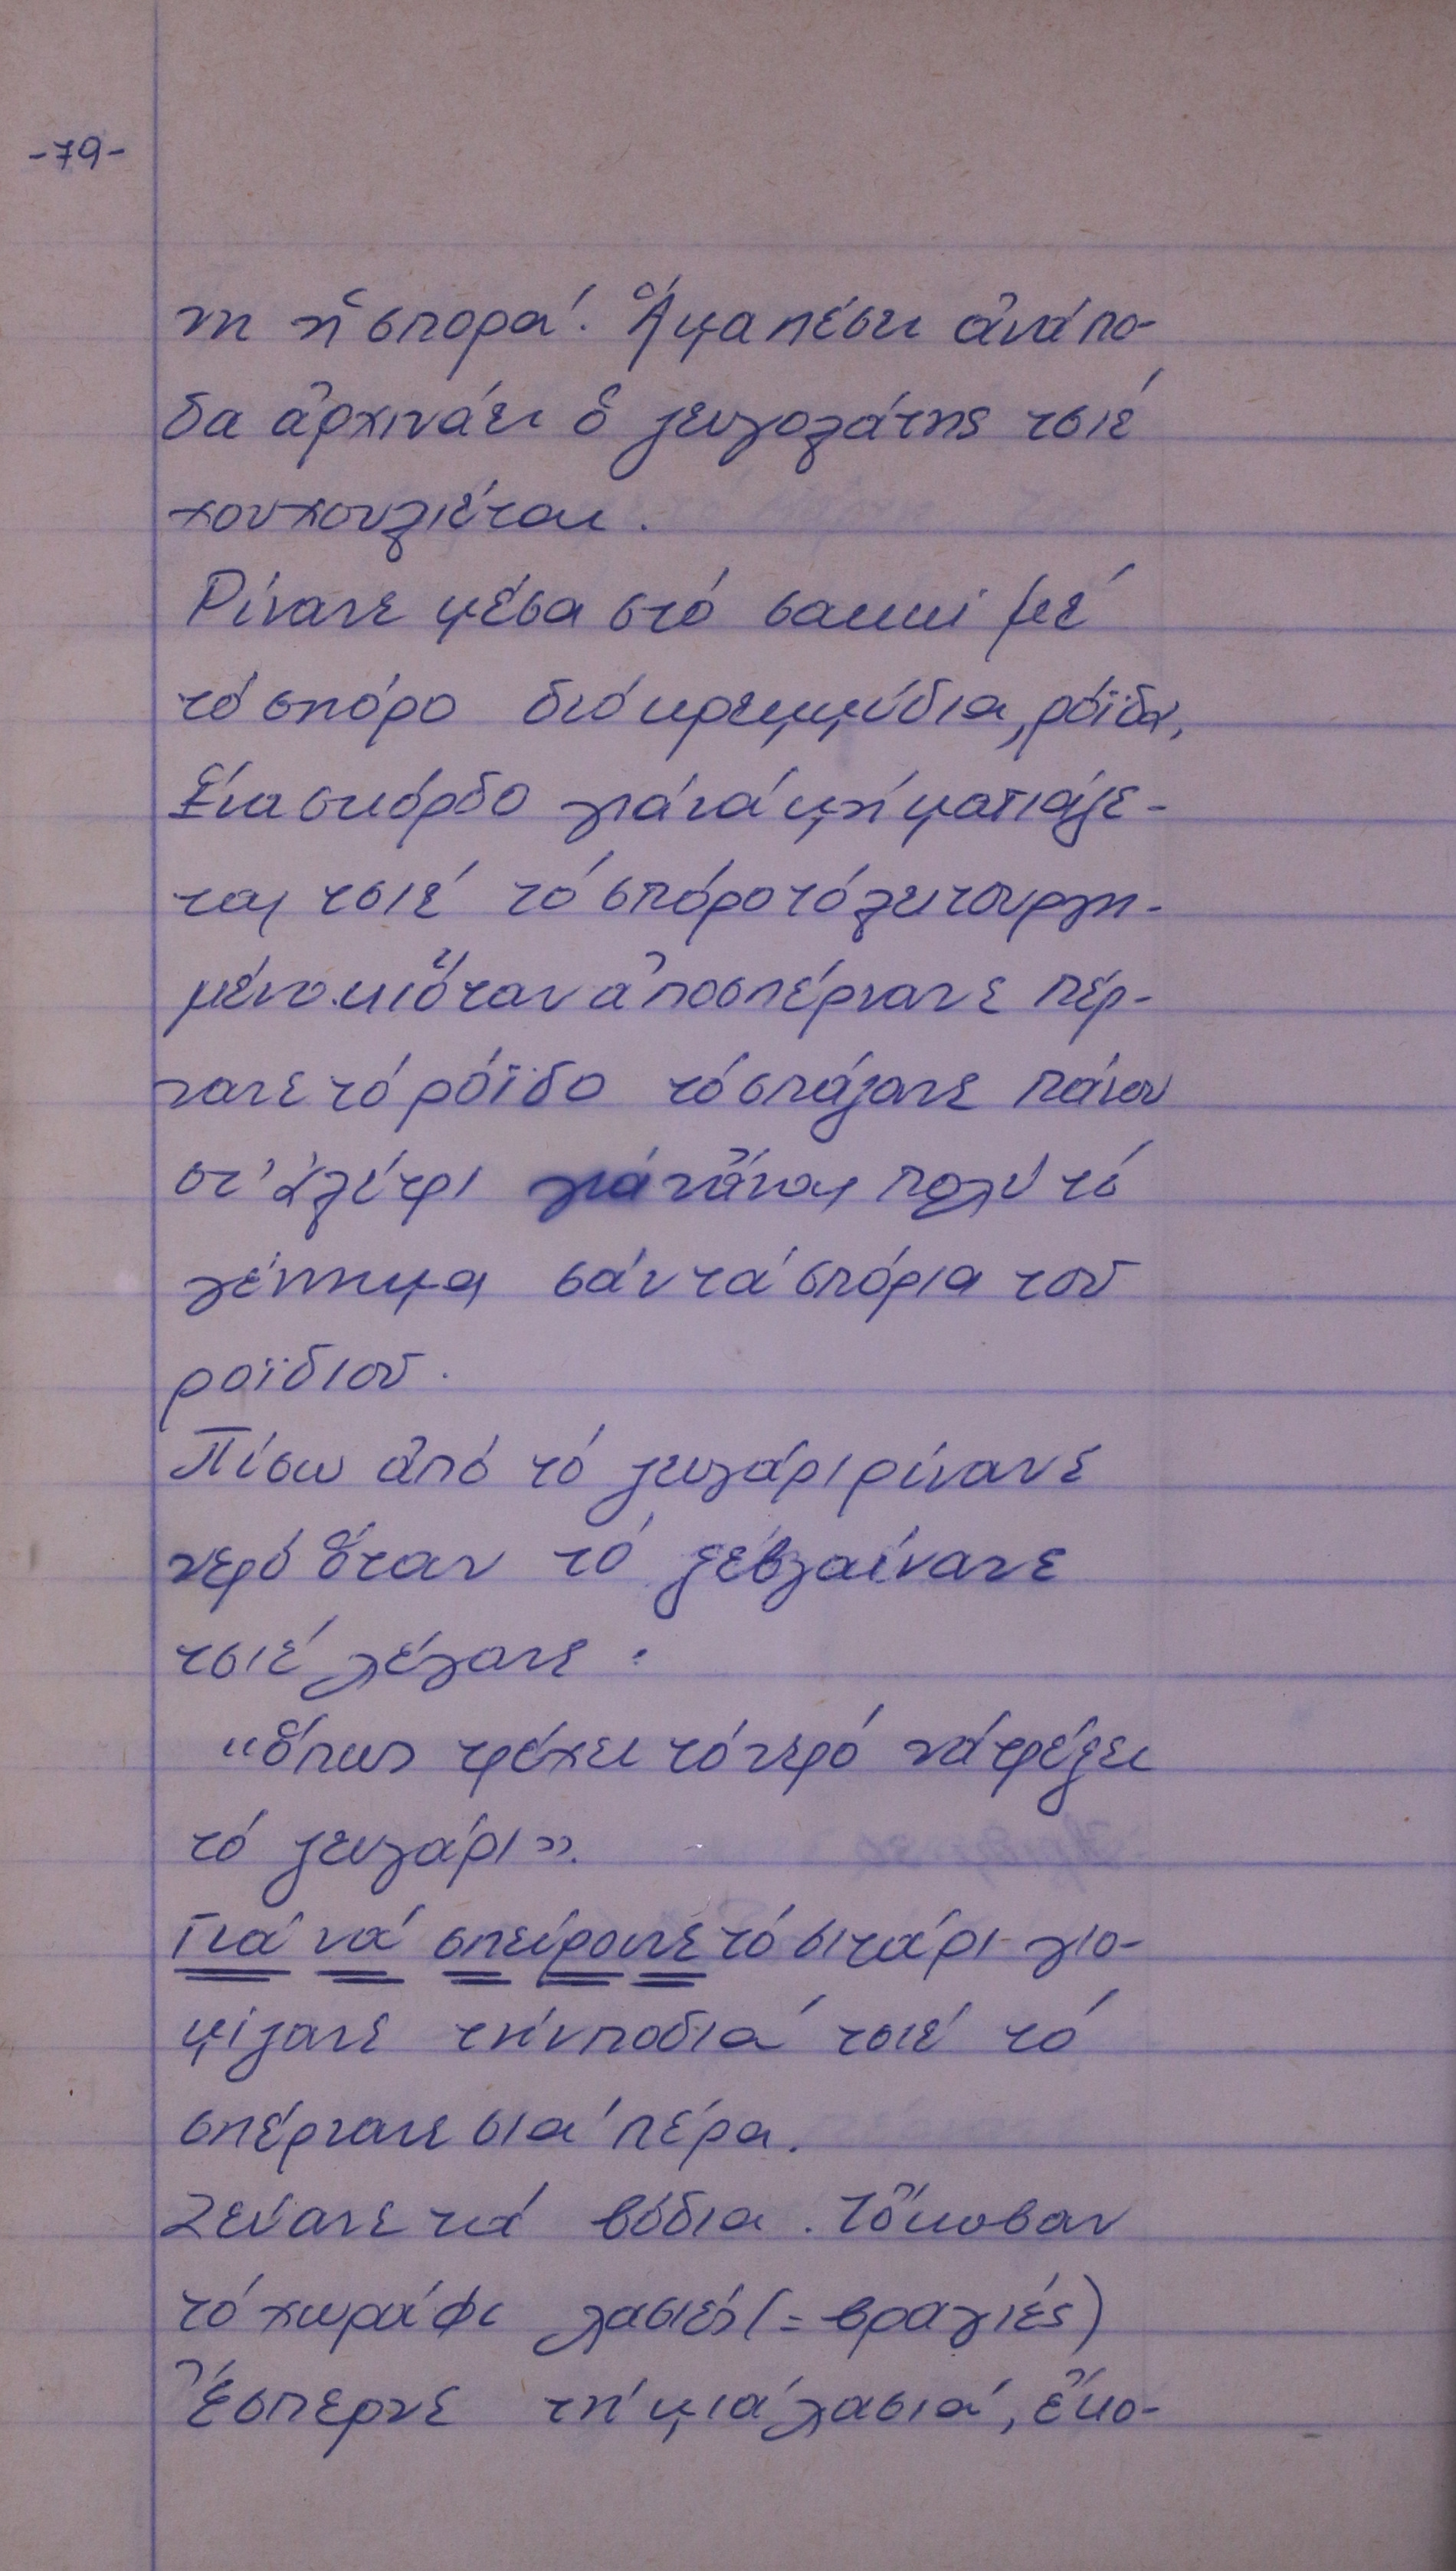 -79-
νη ἡ σπορά. Ἅμα πέσει ἀνάπο-
δα ἀρχινάει ὁ ζευγολάτης τσιέ
χουχουλιέται.
Ρίνανε μέσα στό σακκί μέ
τό σπόρο διό κρεμμύδια, ρόϊδα,
ἕνα σκόρδο γιά νά μή ματιάζε-
ται τσιέ τό σπόρο τό λειτουργη-
μένο κι ὅταν ἀποσπέρνανε πέρ-
νανε τό ρόϊδο τό σπάζανε πάνου
στ' ἀλέτρι γιά νἆναι πολύ τό
γέννημα σάν τά σπόρια τοῦ
ροϊδιοῦ.
Πίσω ἀπό τό ζευγάρι ρίνανε
νερό ὅταν τό ξεβγαίνανε
τσιέ λέγανε :
"ὅπως τρέχει τό νερό νά τρέξει
τό ζευγάρι".
Γιά νά σπείρουνε τό σιτάρι γιο-
μίζανε τήν ποδιά τσιέ τό
σπέρνανε σιά πέρα.
Ζεύανε τά βόδια. Τὄκοβαν
τό χωράφι λασιές (= βραγιές)
Ἔσπερνε τή μιά λασιά, ἔκο-